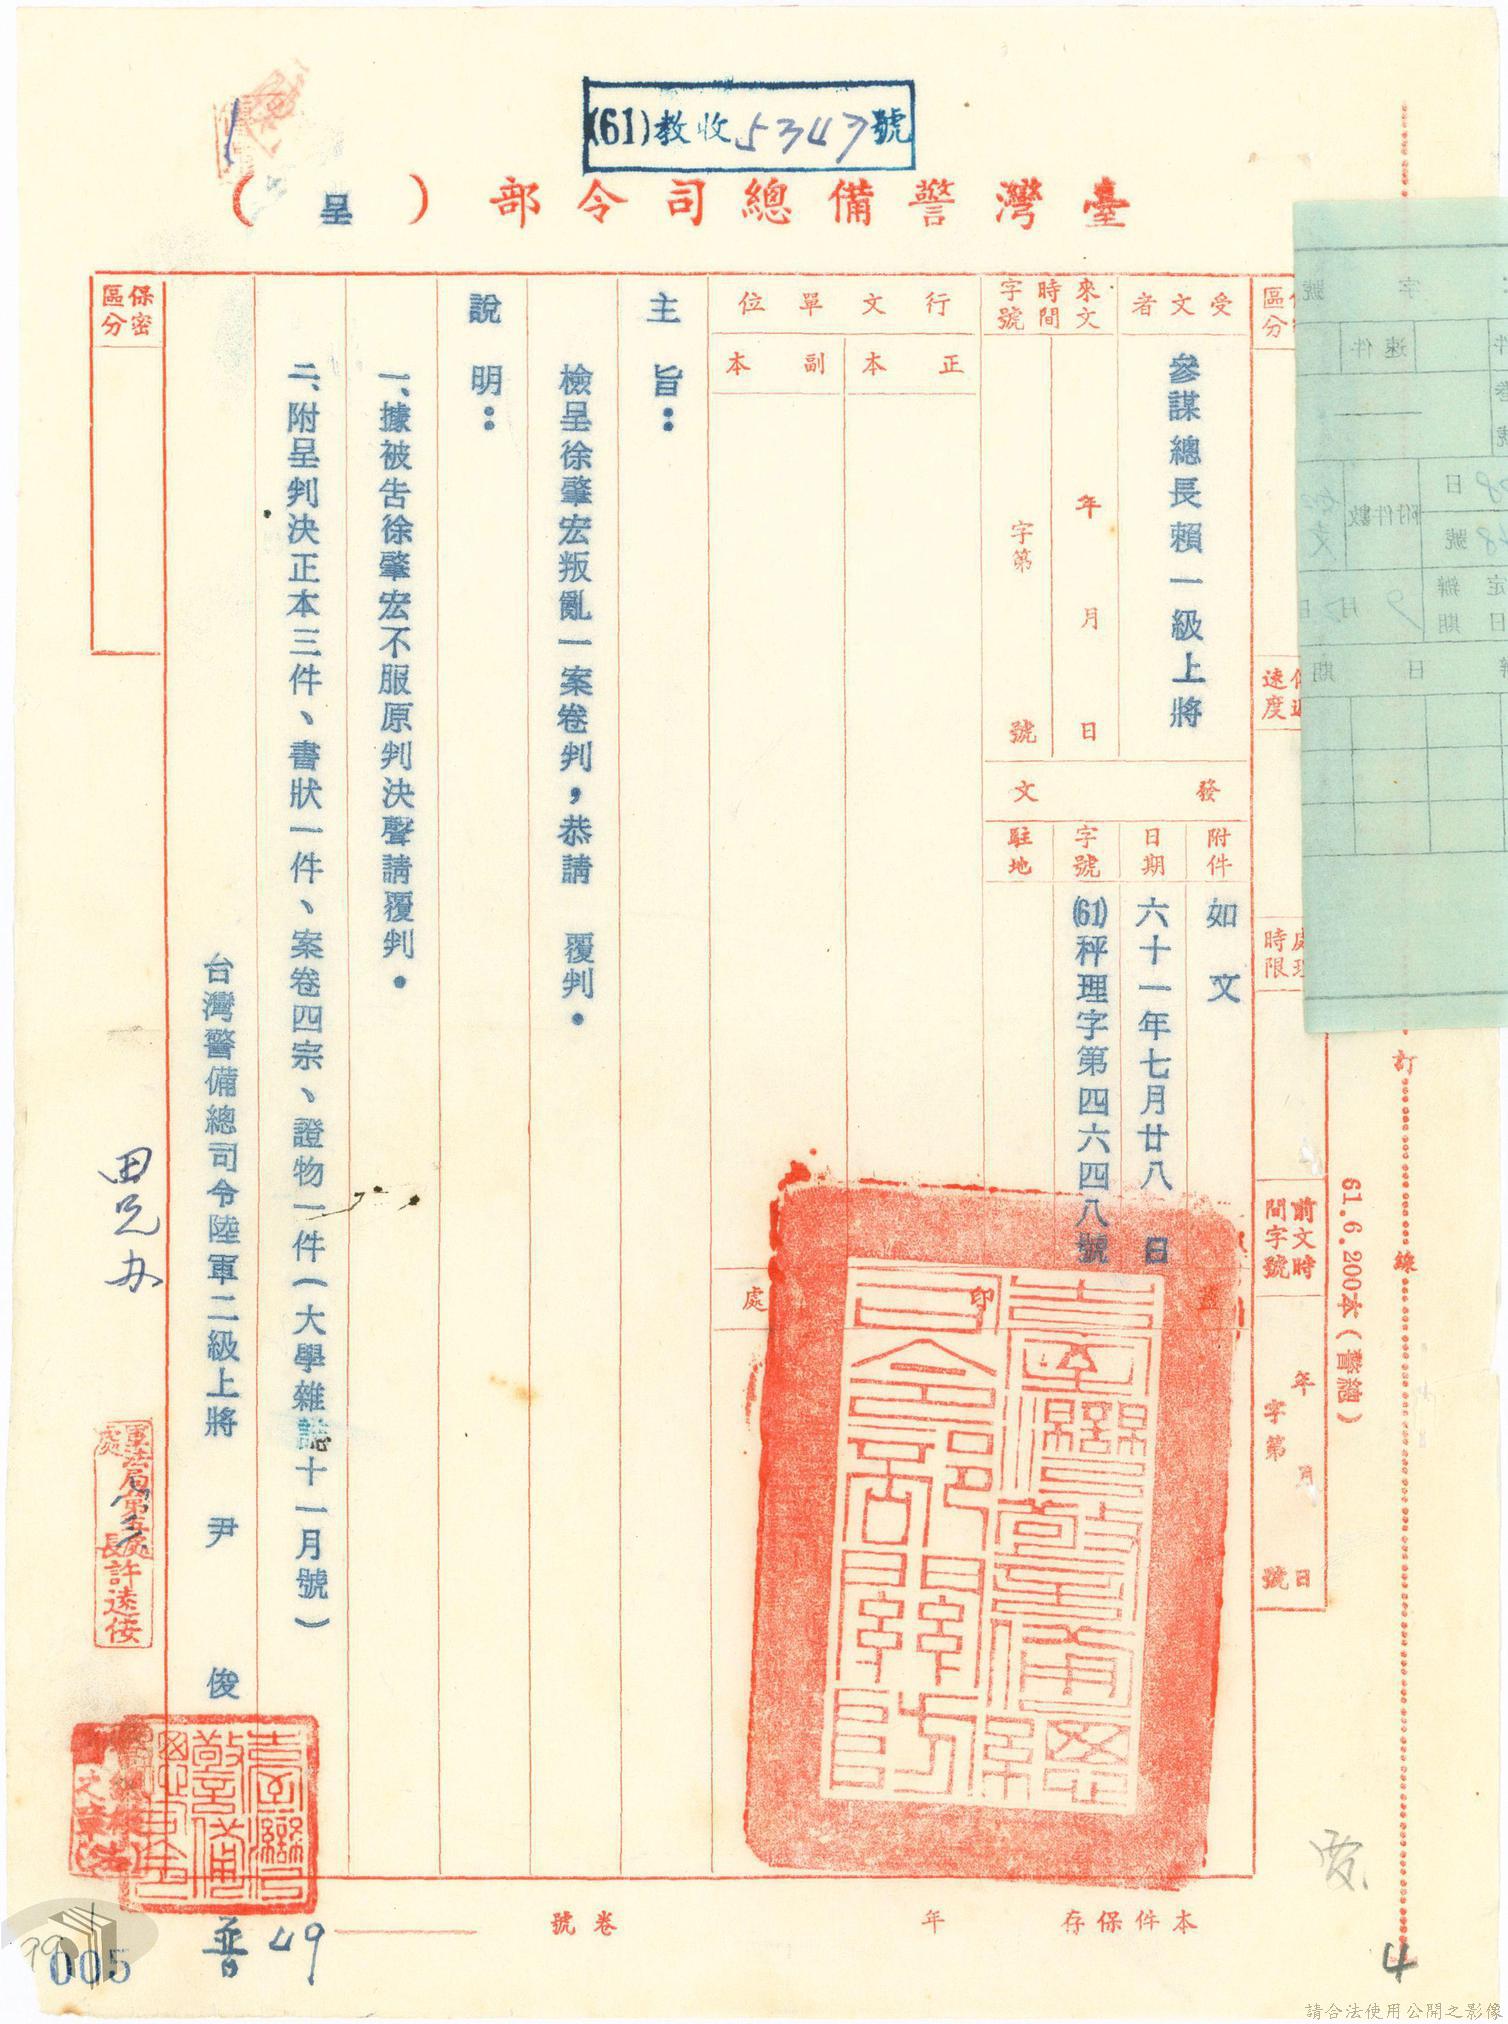 (61)教收5347號
臺灣警備總司令部（呈）
受文者
參謀總長賴一級上將
來文
時間
年月日
字號
字第號
行文單位
正本
副本
速度
時限
前文時間字號
年月日
字第號
發文
附件
如文
日期
六十一年七月廿八日
字號
(61)秤理字第四六四八號
駐地
蓋印處
臺灣警備總司令部關防
主旨：
檢呈徐肇宏叛亂一案卷判，恭請　覆判。
說明：
一、據被告徐肇宏不服原判決聲請覆判。
二、附呈判決正本三件、書狀一件、案卷四宗、證物一件（大學雜誌十一月號）
台灣警備總司令陸軍二級上將　尹　俊
保密區分
田兄办
許遠佞
訂
線
61.6.200本（警總）
速件
附件數
日期
本件保存
年
卷號
普49
005
4
請合法使用公開之影像